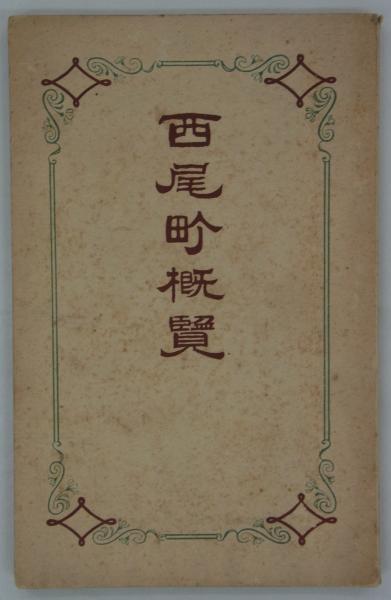 西尾町概覽